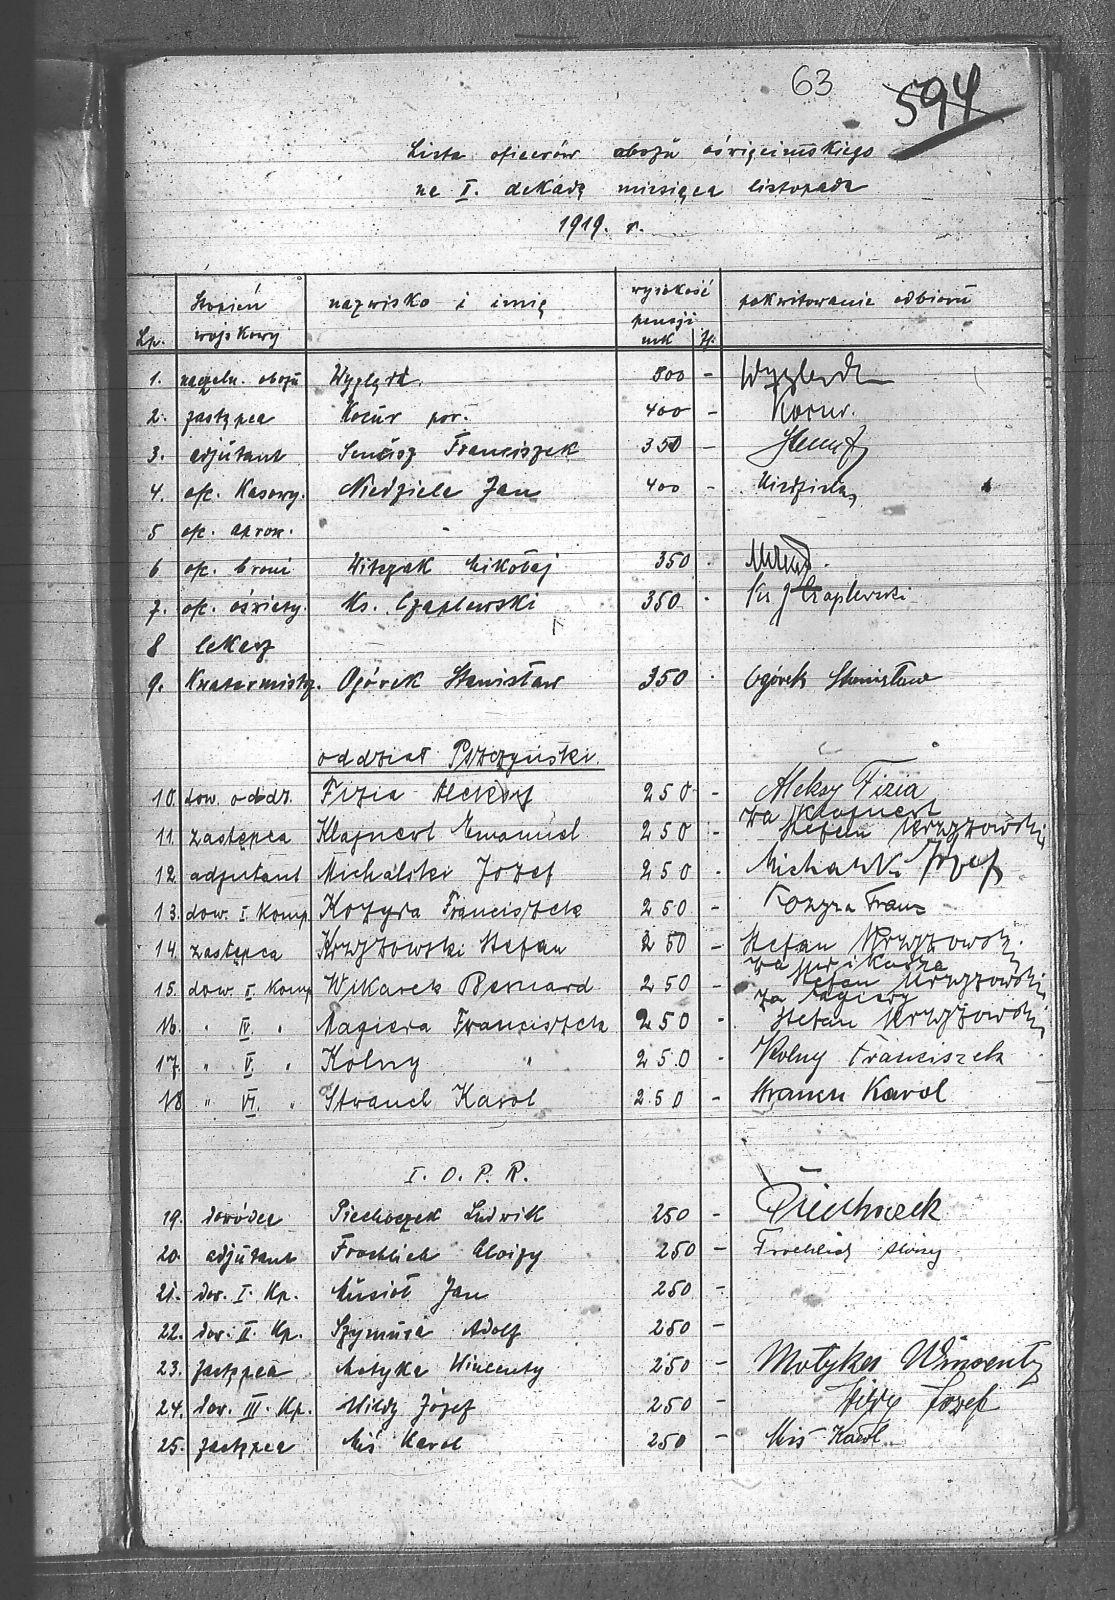 63
594
Lista oficerów obozu oświęcimskiego
na I. dekadę miesiąca listopada
1919. r.
Lp. Stopień wojskowy nazwisko i imię wysokość pensji mk f. pokwitowanie odbioru
1. naczeln. obozu Wyględa. 800 - Wyglenda
2. zastępca Kocur por. 400 - Kocur.
3. adjutant Franciszek 350 -
4. of. Kasowy. Niedziela Jan 400 - Niedziela
5 of. aprow.
6 of. broni Witczak Mikołaj 350 .
7. of. oświaty. Ks. Czaplewski 350 . Ks J Czaplewski
8 lekarz
9. Kwatermistrz. Ogórek Stanisław 350 . Ogórek Stanisław
oddział Pszczyński.
10. dow. oddz. Fizia Aleksy 250 - Aleksy Fizia
11. zastępca Klajnert Emanuel 250 - za Klajnert
Stefan Krzyżowski
12 adjutant Michalski Jozef 250 . Michalski Jozef
13. dow. I. Komp. Kozyra Franciszek 250 - Kozyra Franc
14. zastępca Krzyżowski Stefan 250 - Stefan Krzyżowski.
15. dow. I. Komp Wikarek Bernard 250 - za
Stefan Krzyżowski
16. " IV. " Magiera Franciszek 250 - za Magiery
Stefan Krzyżowski
17. " V. " Kolny " 250 - Kolny Franciszek
18 " VI. " Strauch Karol 250 - Strauch Karol
I. O. P. R.
19. dowódca Piechoczek Ludwik 250 - Piechoczek
20. adjutant Froehlich Alojzy 250 - Froehlich Alojzy
21. dow. I. Kp. Musioł Jan 250 -
22. dow. II. Kp. Szymura Adolf 250 -
23. zastępca Motyka Wincenty 250 - Motyka Wincenty
24. dow. III. Kp. Wildy Józef 250 - Józef
25. zastępca Miś Karol 250 - Miś Karol